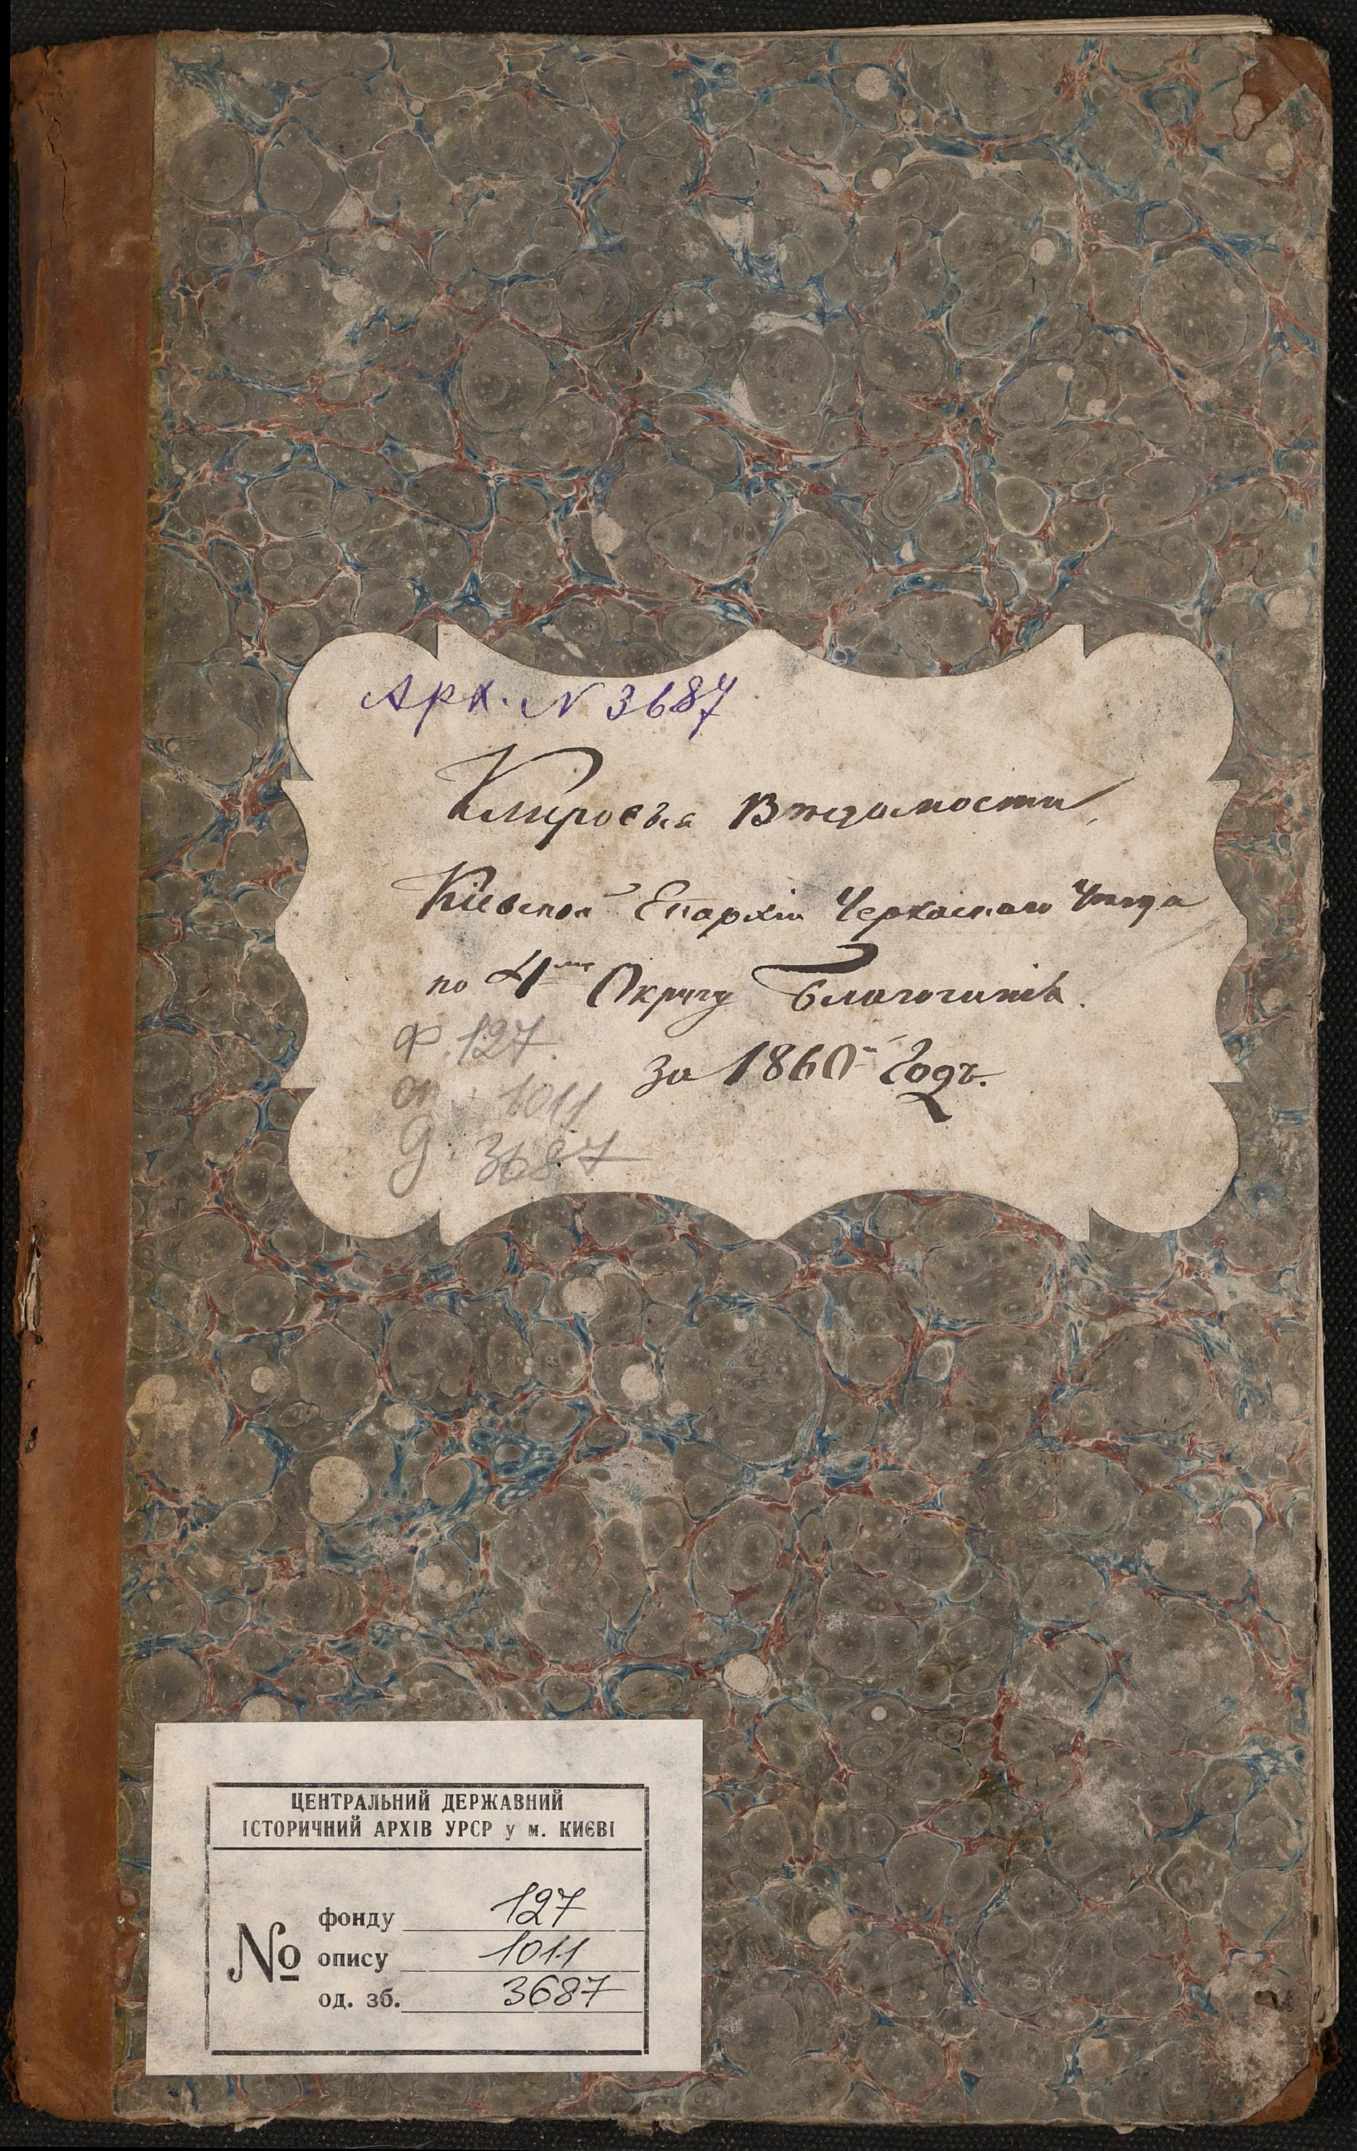 Арх. N 3687
Клировыя Вѣдомости,
Кіевской Епархіи Черкаскаго Уѣзда
по 4му Округу Благочинія.
за 1860й Годъ.
Ф. 127.
оп. 1011
д. 3687
ЦЕНТРАЛЬНИЙ ДЕРЖАВНИЙ
ІСТОРИЧНИЙ АРХІВ УРСР у м. КИЄВІ
№
фонду 127
опису 1011
од. зб. 3687